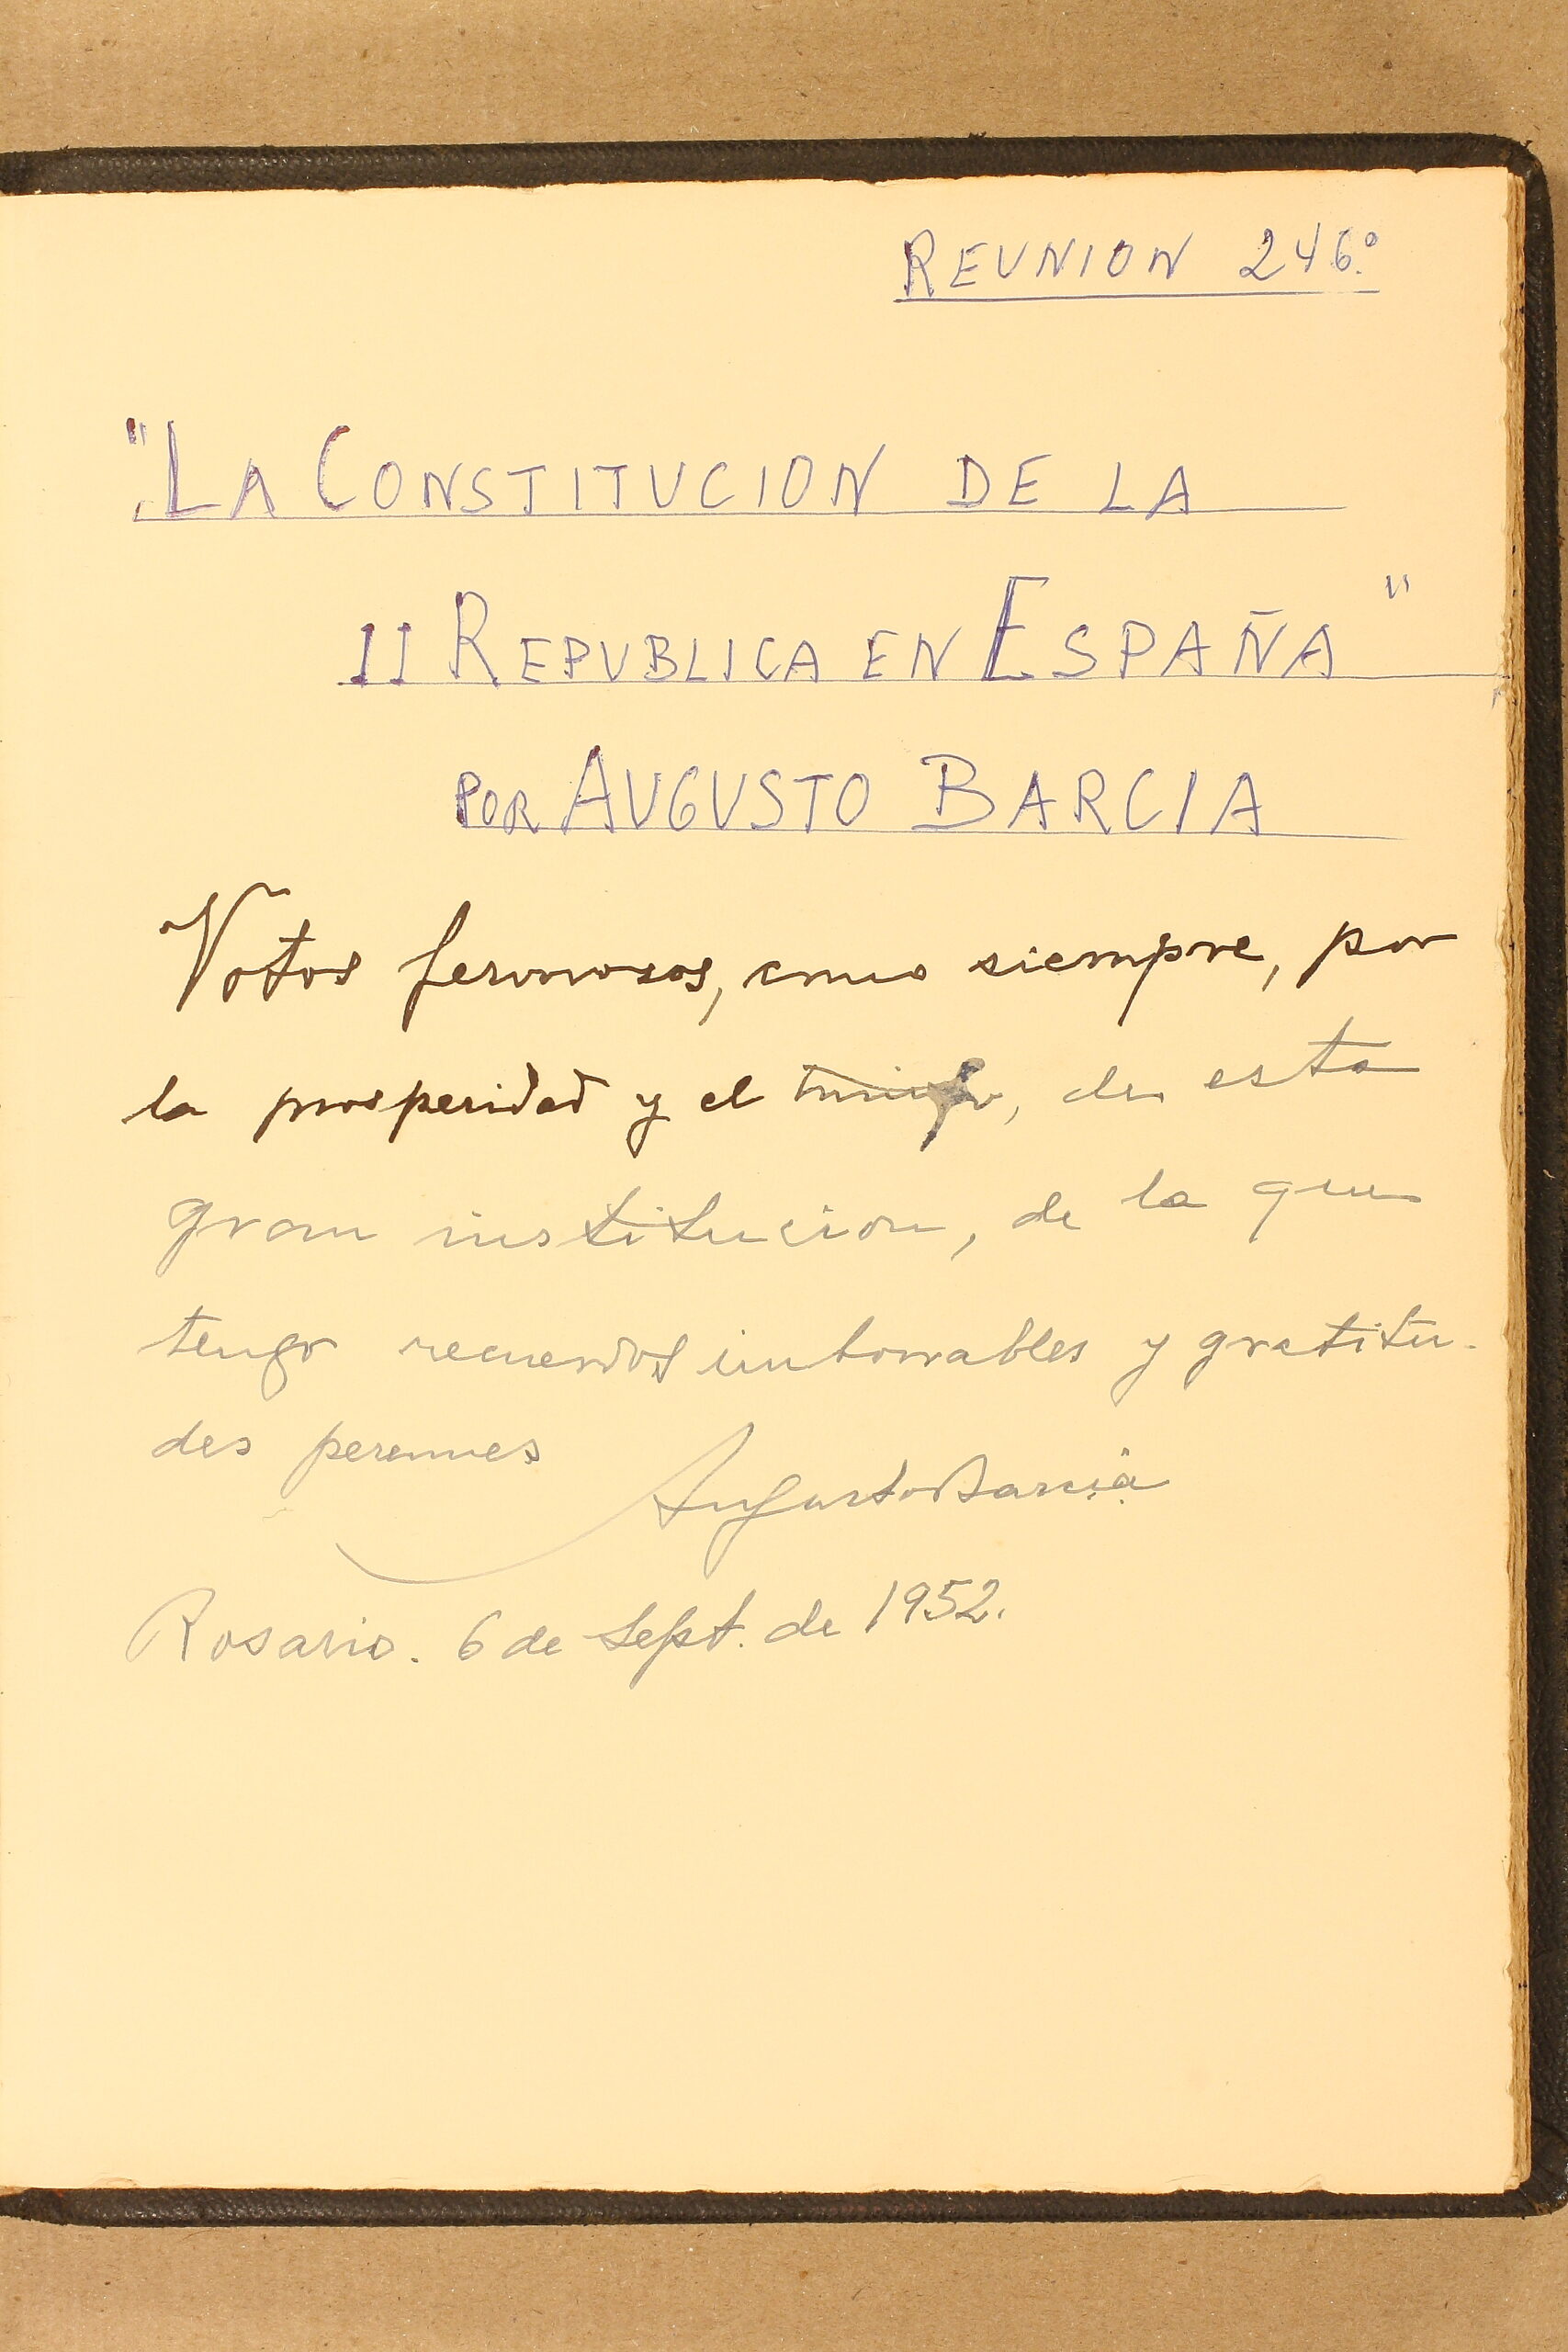 REUNION 246.º
"LA CONSTITUCION DE LA
II REPUBLICA EN ESPAÑA"
POR AUGUSTO BARCIA
Votos fervorosos, como siempre, por
la prosperidad y el triunfo, de esta
gran institucion, de la que
tengo recuerdos imborrables y gratitu-
des perennes
Augusto Barcia
Rosario. 6 de Sept. de 1952.